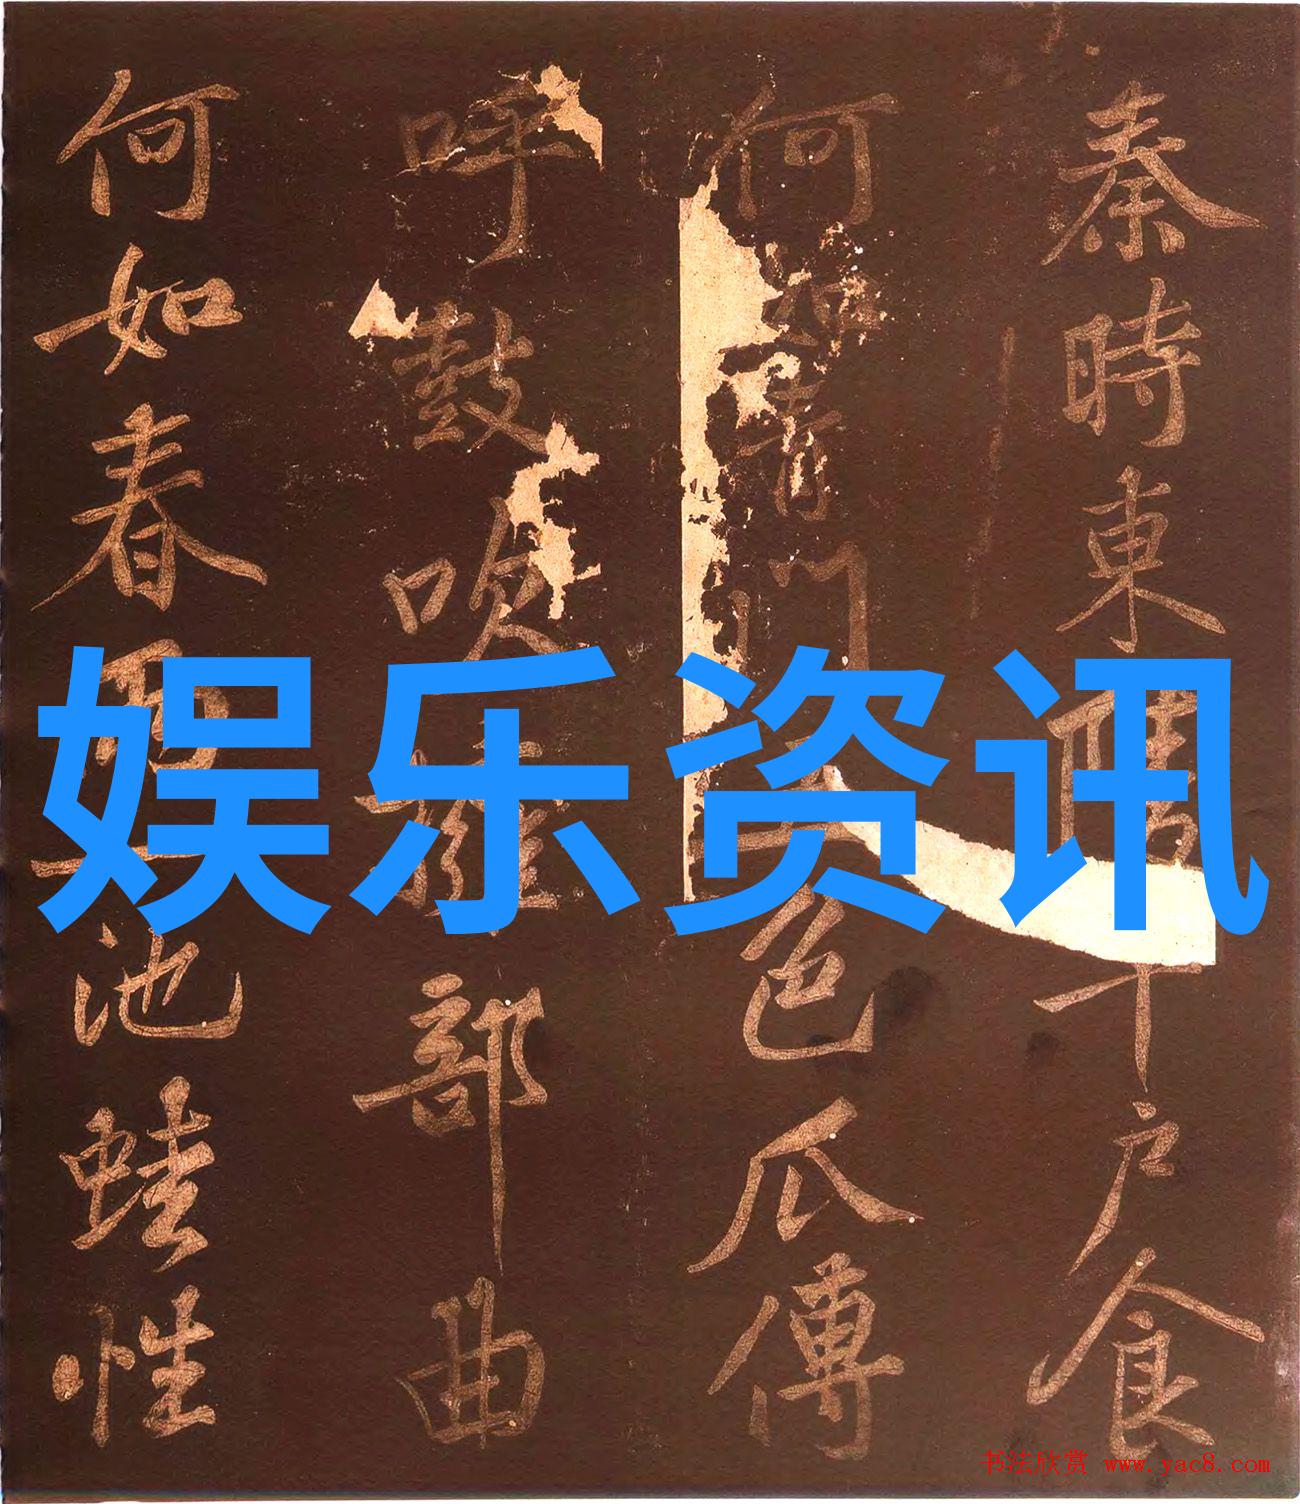 秦時東千戶食
何如青門色瓜傳
呼鼓吹擁部曲
何如春雨一池蛙性
娱乐资讯
书法欣赏 www.yac8.com